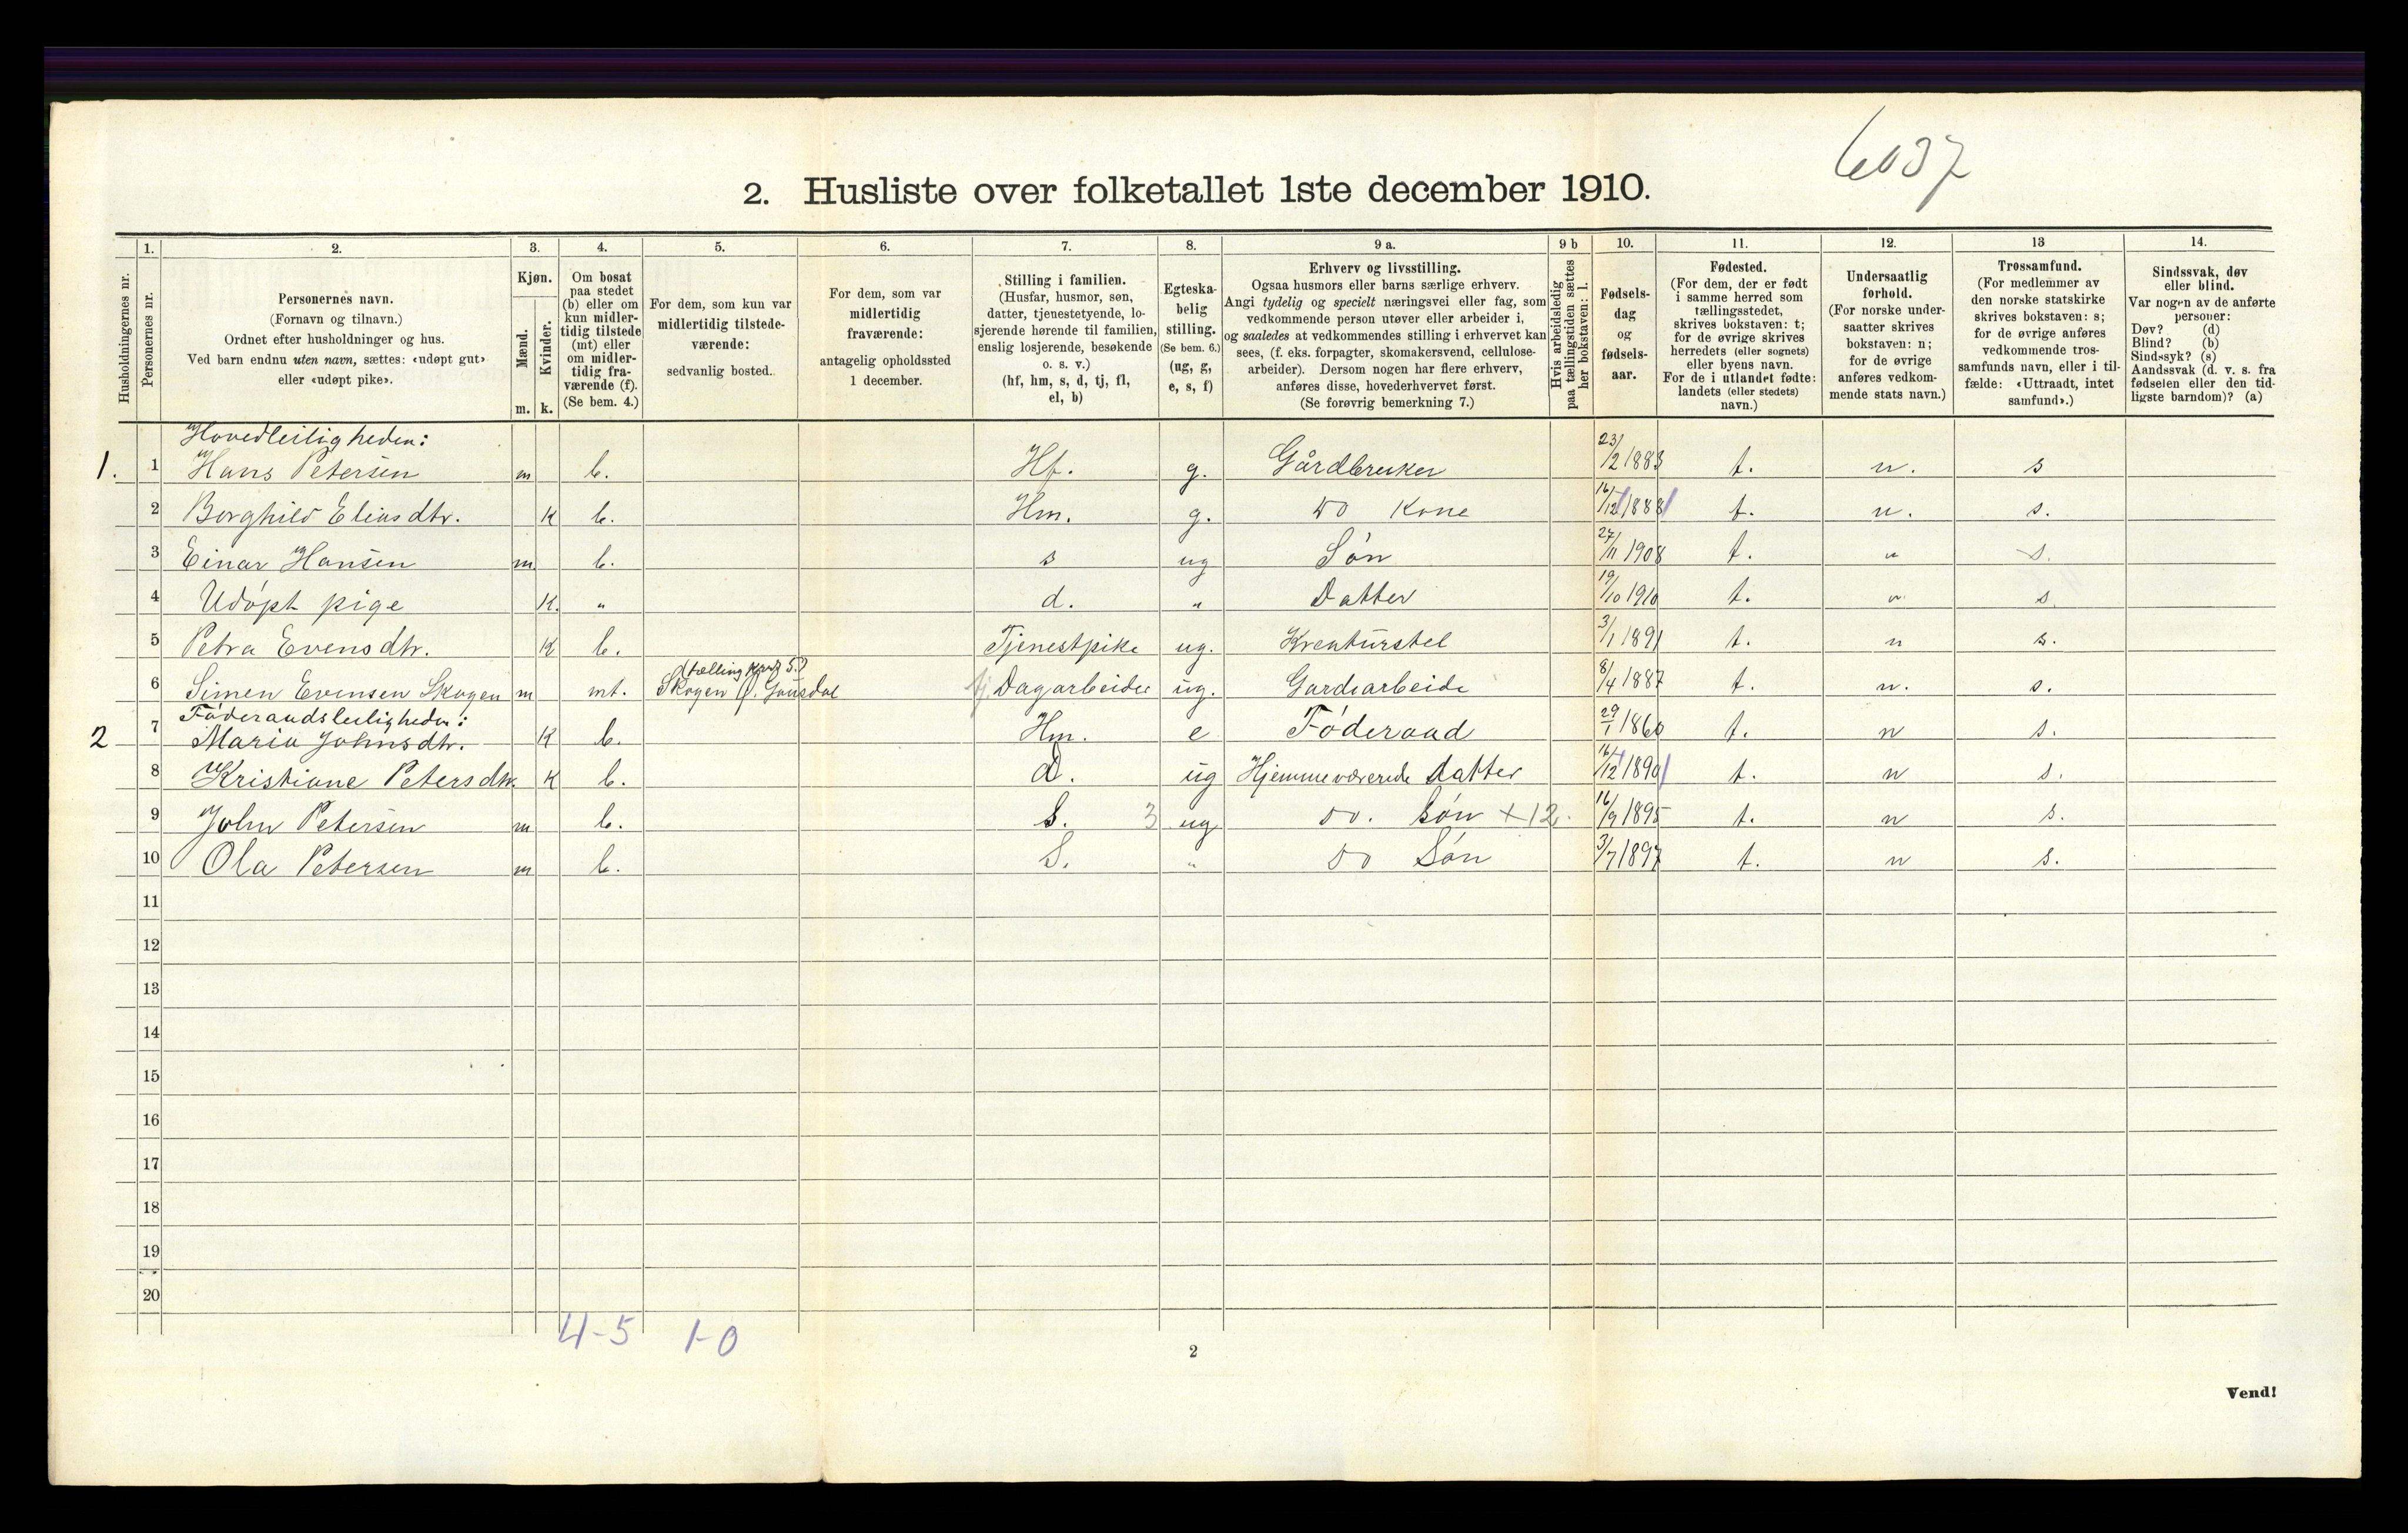 6037
2. Husliste over folketallet 1ste december 1910.
1. 2. 3. 4. 5. 6. 7. 8. 9 a. 9 b 10. 11. 12. 13 14.
Husholdningernes nr.
Personernes nr.
Personernes navn.
(Fornavn og tilnavn.)
Ordnet efter husholdninger og hus.
Ved barn endnu uten navn, sættes: «udøpt gut»
eller «udøpt pike».
Kjøn.
Mænd.
Kvinder.
m. k.
Om bosat
paa stedet
(b) eller om
kun midler-
tidig tilstede
(mt) eller
om midler-
tidig fra-
værende (f).
(Se bem. 4.)
For dem, som kun var
midlertidig tilstede-
værende:
sedvanlig bosted.
For dem, som var
midlertidig
fraværende:
antagelig opholdssted
1 december.
Stilling i familien.
(Husfar, husmor, søn,
datter, tjenestetyende, lo-
sjerende hørende til familien,
enslig losjerende, besøkende
o. s. v.)
(hf, hm, s, d, tj, fl,
el, b)
Egteska-
belig
stilling.
(Se bem. 6.)
(ug, g,
e, s, f)
Erhverv og livsstilling.
Ogsaa husmors eller barns særlige erhverv.
Angi tydelig og specielt næringsvei eller fag, som
vedkommende person utøver eller arbeider i,
og saaledes at vedkommendes stilling i erhvervet kan
sees, (f. eks. forpagter, skomakersvend, cellulose-
arbeider). Dersom nogen har flere erhverv,
anføres disse, hovederhvervet først.
(Se forøvrig bemerkning 7.)
Hvis arbeidsledig
paa tællingstiden sættes
her bokstaven: l.
Fødsels-
dag
og
fødsels-
aar.
Fødested.
(For dem, der er født
i samme herred som
tællingsstedet,
skrives bokstaven: t;
for de øvrige skrives
herredets (eller sognets)
eller byens navn.
For de i utlandet fødte:
landets (eller stedets)
navn.)
Undersaatlig
forhold.
(For norske under-
saatter skrives
bokstaven: n;
for de øvrige
anføres vedkom-
mende stats navn.)
Trossamfund.
(For medlemmer av
den norske statskirke
skrives bokstaven: s;
for de øvrige anføres
vedkommende tros-
samfunds navn, eller i til-
fælde: «Uttraadt, intet
samfund».)
Sindssvak, døv
eller blind.
Var nogen av de anførte
personer:
Døv? (d)
Blind? (b)
Sindssyk? (s)
Aandssvak (d. v. s. fra
fødselen eller den tid-
ligste barndom)? (a)
Hovedleiligheden:
1. 1 Hans Petersen m b. Hf. g. Gårdbruker 23/12 1883 t. n. s
2 Borghild Eliasdtr. K b. Hm. g. Do Kone 16/12 1888 t. n. s.
3 Einar Hansen m. b. s ug Søn 27/11 1908 t. " s.
4 Udöpt pige K. " d. " Datter 19/10 1910 t. " s.
5 Petra Evensdtr. K b. Tjenestpike ug. Kreaturstel 3/1 1891 t. n s.
6 Simen Evensen Skogen m mt. Skogen Ø. Gausdal tj Dagarbeider ug. Gardsarbeide 8/4 1887 t. n. s.
Föderaadsleiligheden:
2 7 Maria Johnsdtr. K b. Hm. e Föderaad 29/1 1860 t. n s.
8 Kristiane Petersdtr. K b. d. ug Hjemmeværende Datter 16/12 1890 t. n s.
9 John Petersen m b. S. 3 ug Do. Søn + 12. 16/9 1895 t. n s.
10 Ola Petersen m b. S. " Do Søn 3/7 1897 t. n s.
11
12
13
14
15
16
17
18
19
20
4-5 1-0
2
Vend!